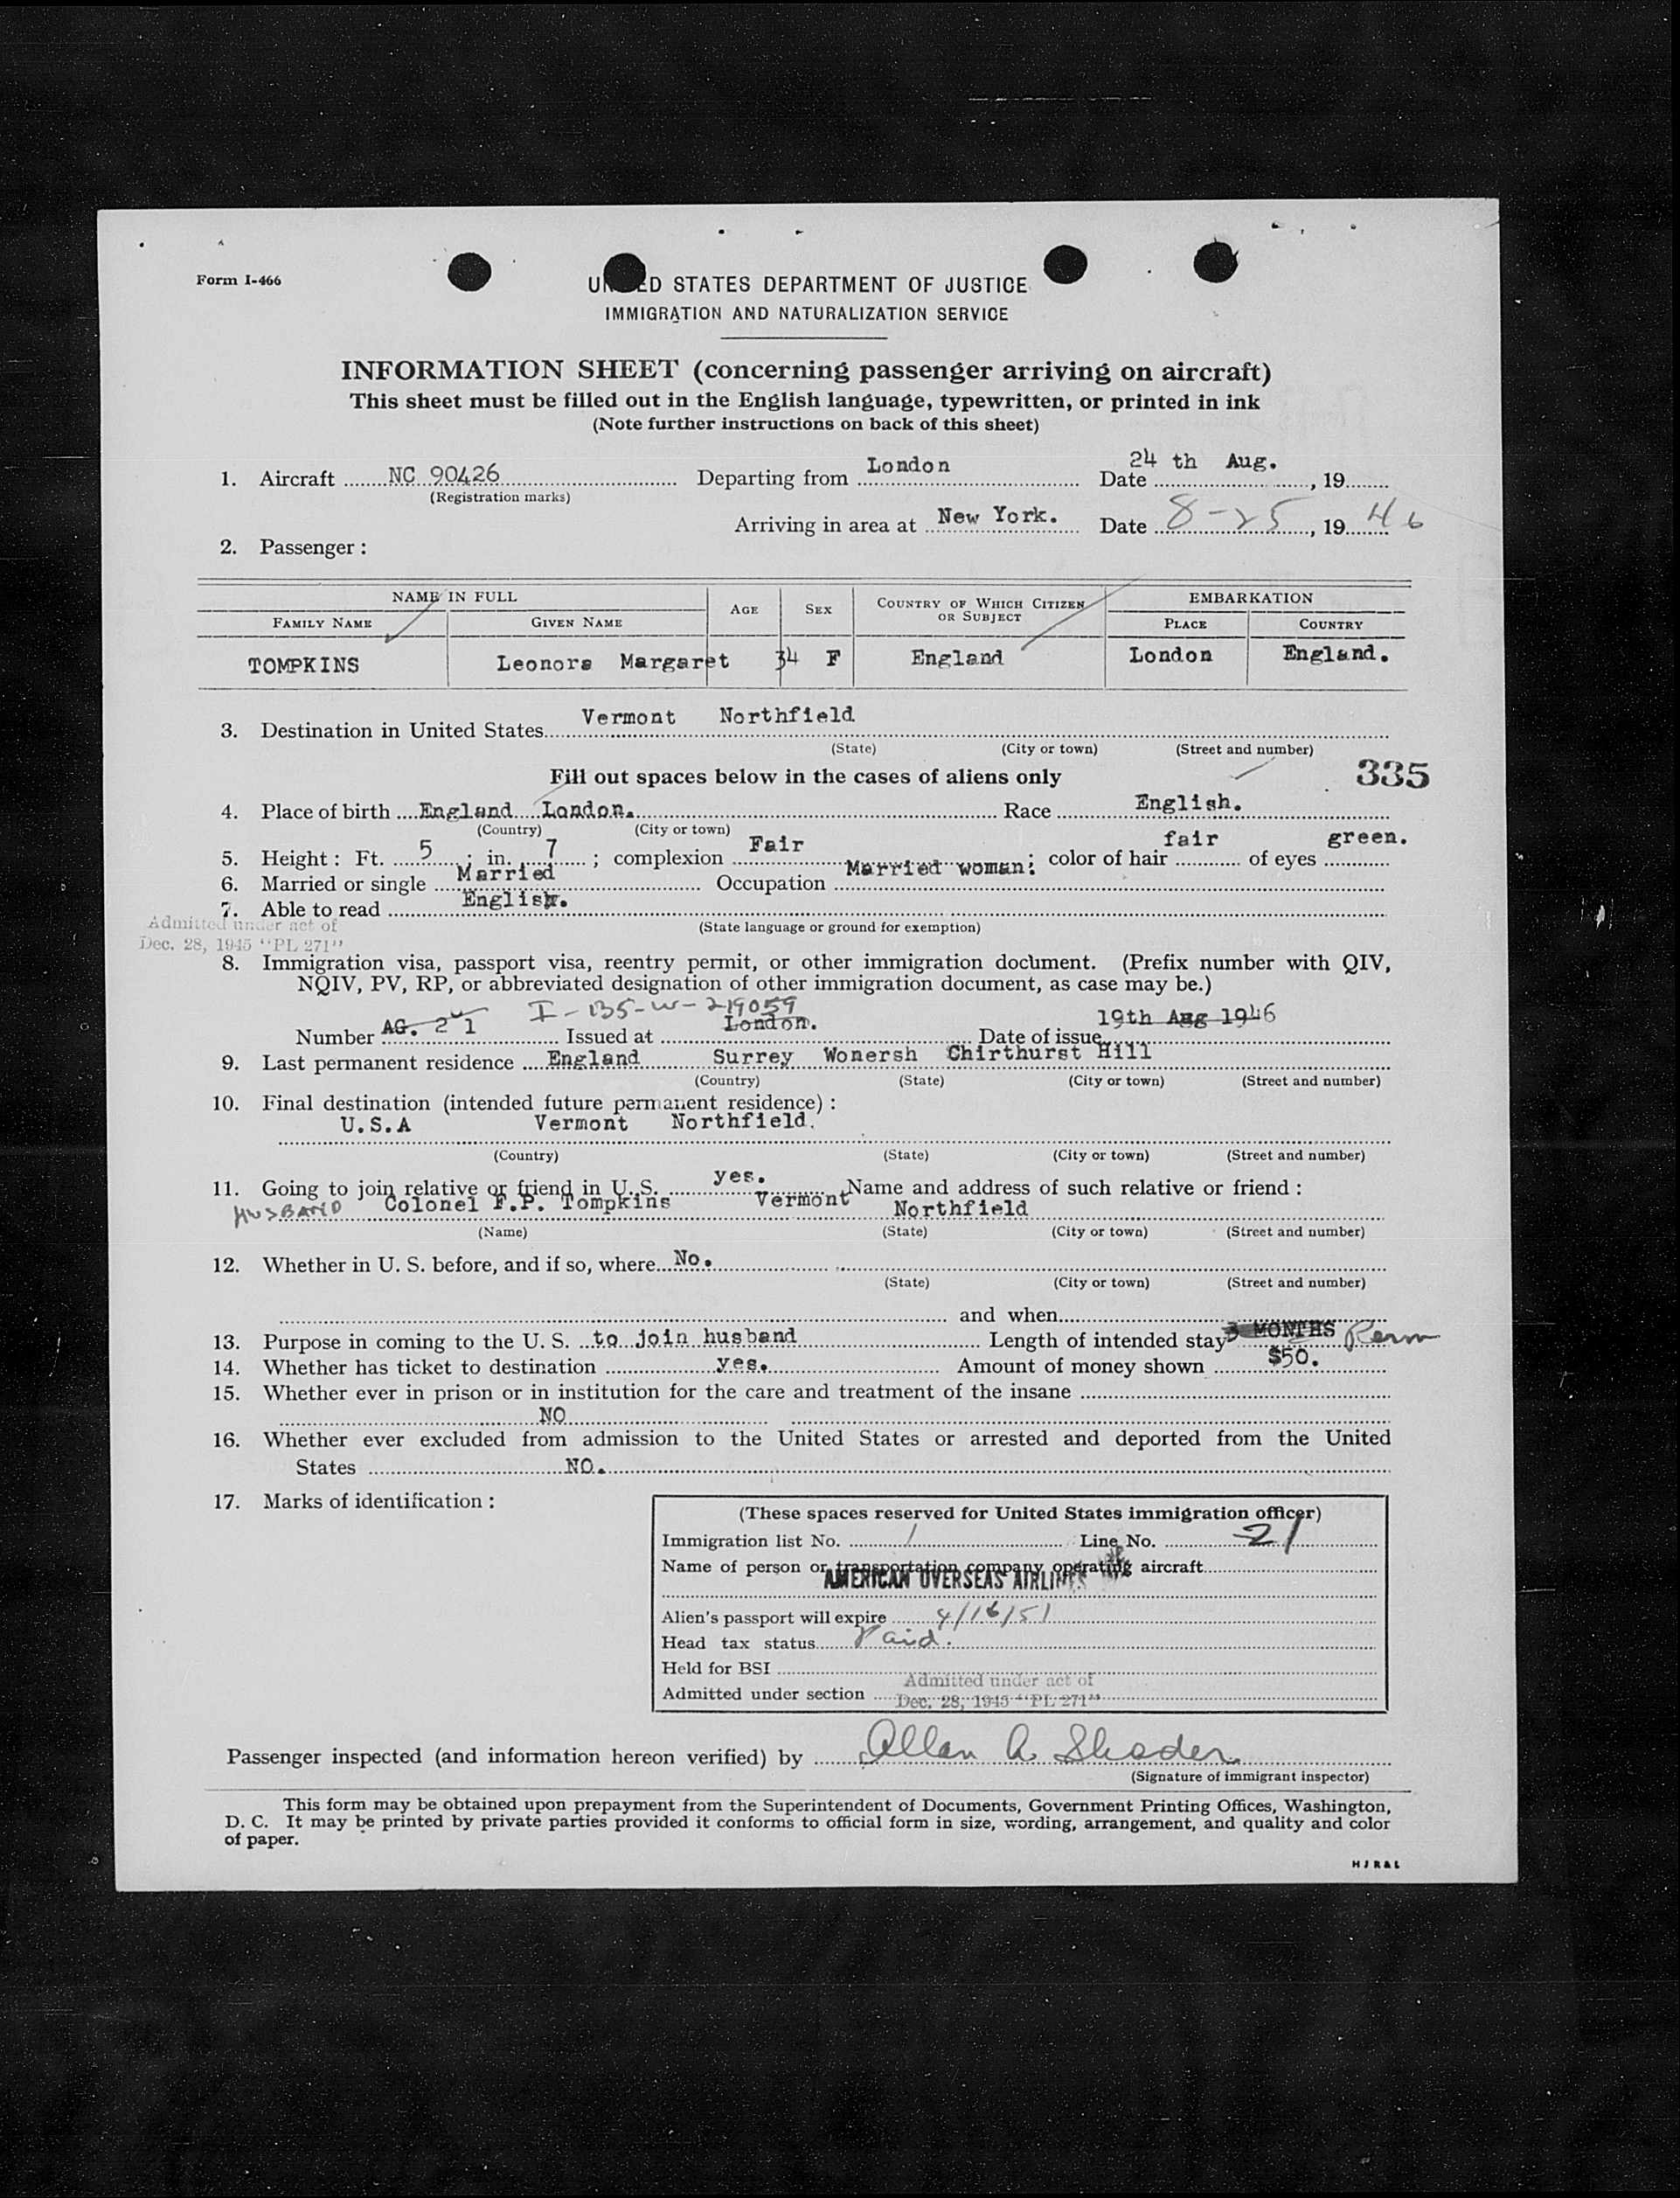 Form I-466
UNITED STATES DEPARTMENT OF JUSTICE
IMMIGRATION AND NATURALIZATION SERVICE
INFORMATION SHEET (concerning passenger arriving on aircraft)
This sheet must be filled out in the English language, typewritten, or printed in ink
(Note further instructions on back of this sheet)
1. Aircraft NC 90426 Departing from London Date 24 th Aug. , 19
(Registration marks)
Arriving in area at New York. Date 8-25, 19 46
2. Passenger :
NAME IN FULL AGE SEX COUNTRY OF WHICH CITIZEN OR SUBJECT EMBARKATION
FAMILY NAME GIVEN NAME PLACE COUNTRY
TOMPKINS Leonora Margaret 34 F England London England.
3. Destination in United States Vermont Northfield
(State) (City or town) (Street and number)
Fill out spaces below in the cases of aliens only 335
4. Place of birth England London. Race English.
(Country) (City or town)
5. Height : Ft. 5 ; in. 7 ; complexion Fair ; color of hair fair of eyes green.
6. Married or single Married Occupation Married woman.
7. Able to read English.
Admitted under act of
(State language or ground for exemption)
Dec. 28, 1945 "PL 271"
8. Immigration visa, passport visa, reentry permit, or other immigration document. (Prefix number with QIV,
NQIV, PV, RP, or abbreviated designation of other immigration document, as case may be.)
I-135-W-219059
Number AG. 2 1 Issued at London. Date of issue 19th Aug 1946
9. Last permanent residence England Surrey Wonersh Chirthurst Hill
(Country) (State) (City or town) (Street and number)
10. Final destination (intended future permanent residence) :
U.S.A Vermont Northfield.
(Country) (State) (City or town) (Street and number)
11. Going to join relative or friend in U. S. yes. Name and address of such relative or friend :
HUSBAND Colonel F.P. Tompkins Vermont Northfield
(Name) (State) (City or town) (Street and number)
12. Whether in U. S. before, and if so, where No.
(State) (City or town) (Street and number)
and when
13. Purpose in coming to the U. S. to join husband Length of intended stay 3 MONTHS Perm
14. Whether has ticket to destination yes. Amount of money shown $50.
15. Whether ever in prison or in institution for the care and treatment of the insane
NO
16. Whether ever excluded from admission to the United States or arrested and deported from the United
States NO.
17. Marks of identification :
(These spaces reserved for United States immigration officer)
Immigration list No. 1 Line No. 21
Name of person or transportation company operating aircraft
AMERICAN OVERSEAS AIRLINES
Alien's passport will expire 4/16/51
Head tax status Paid.
Held for BSI
Admitted under act of
Admitted under section Dec. 28, 1945 "PL 271"
Passenger inspected (and information hereon verified) by Allan A. Shader
(Signature of immigrant inspector)
This form may be obtained upon prepayment from the Superintendent of Documents, Government Printing Offices, Washington,
D. C. It may be printed by private parties provided it conforms to official form in size, wording, arrangement, and quality and color
of paper.
HJR&L